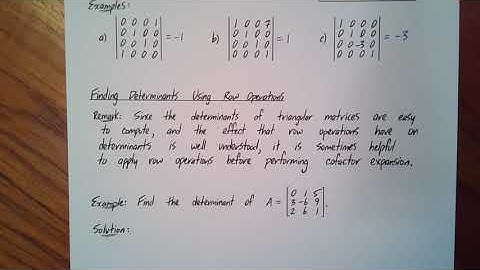 Examples:
a) |0 0 0 1; 0 1 0 0; 0 0 1 0; 1 0 0 0| = -1   b) |1 0 0 7; 0 1 0 0; 0 0 1 0; 0 0 0 1| = 1   c) |1 0 0 0; 0 1 0 0; 0 0 -3 0; 0 0 0 1| = -3
Finding Determinants Using Row Operations
Remark: Since the determinants of triangular matrices are easy
to compute, and the effect that row operations have on
determinants is well understood, it is sometimes helpful
to apply row operations before performing cofactor expansion.
Example: Find the determinant of A = |0 1 5; 3 -6 9; 2 6 1|.
Solution: